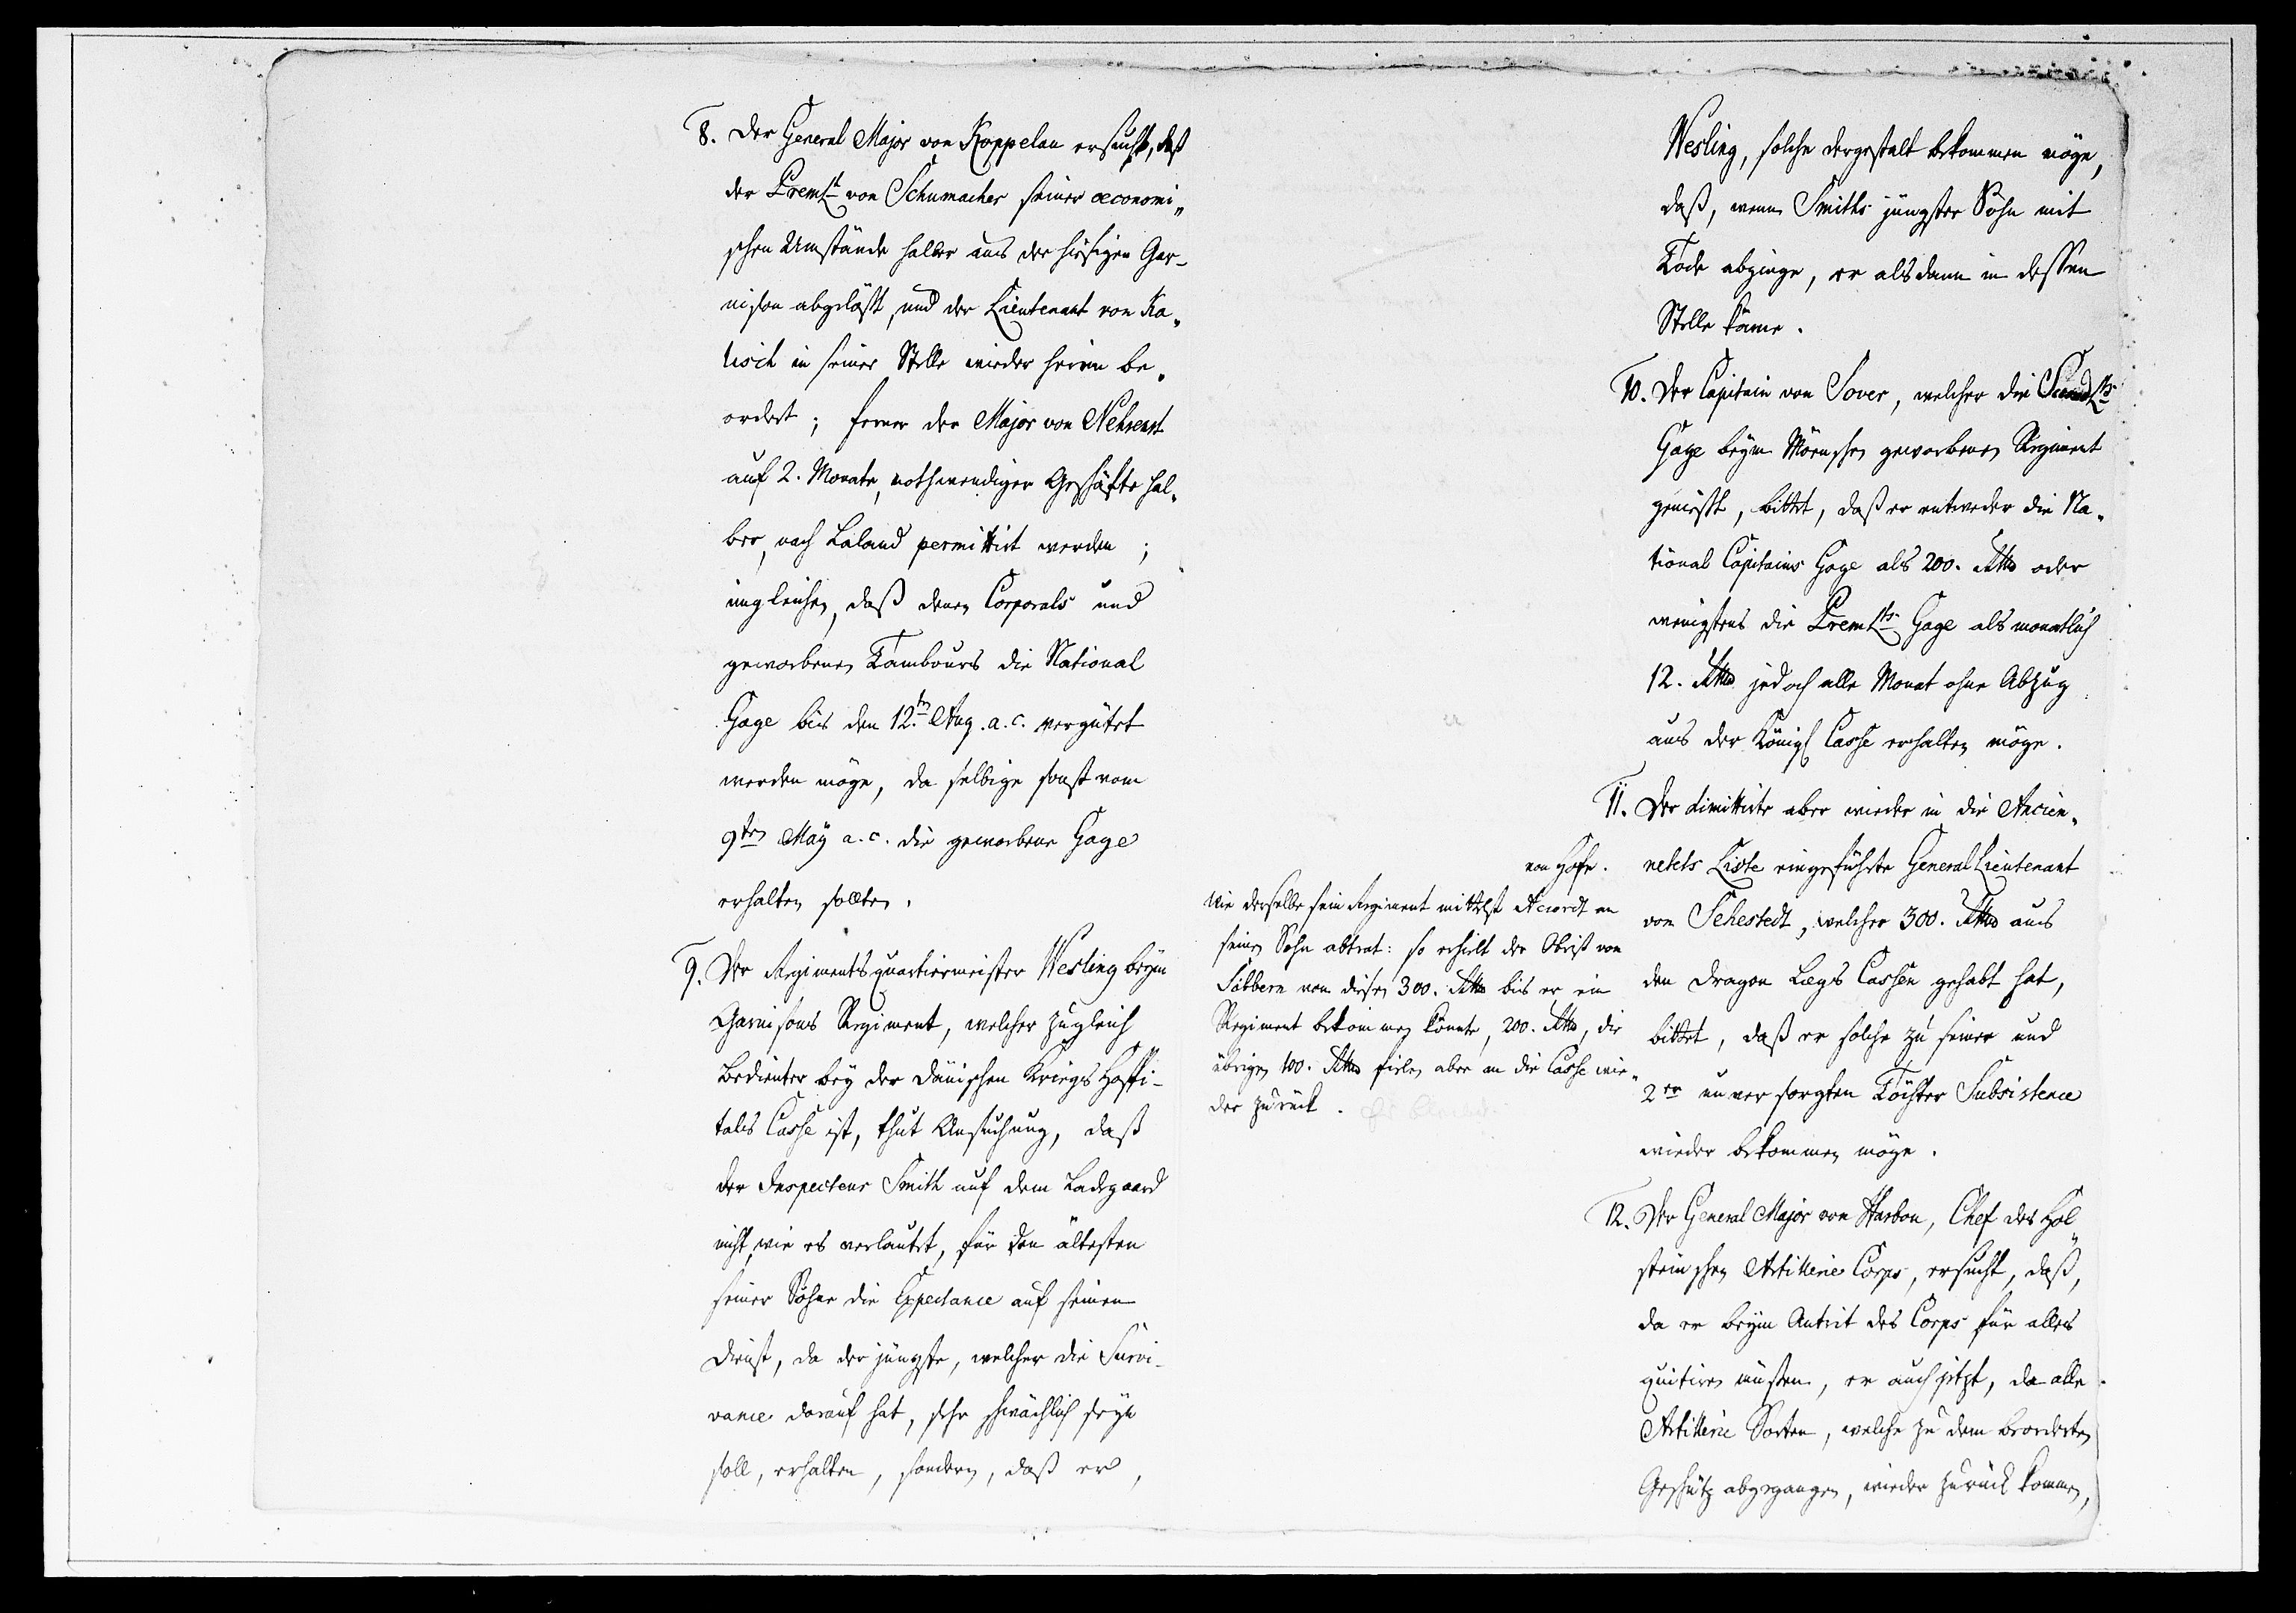 8. Der General Major von Koppelau ersucht, daß
der PremLt von Schumacher seiner oeconomi„
schen Umstände halber aus der hiesigen Gar-
nison abgelößt, und der Lieutenant von Ka„
lisch in seiner Stelle wieder herein be„
ordert; ferner der Major von
auf 2. Monate, nothwendiger Geschäfte hal„
ber, nach Laland permittirt werden;
ingleichen, daß denen Corporals und
geworbenen Tambours die National
Gage bis den 12ten Aug. a. c. vergütet
werden möge, da selbige sonst vom
9ten May a. c. die geworbene Gage
erhalten sollten.
9. Der Regimentsquartiermeister Wesling beym
Garnisons Regiment, welcher zugleich
Bedienter bey der Dänischen Kriegs Hospi-
tals Casse ist, thut Ansuchung, daß
der Inspecteur Smith auf dem Ladegaard
nicht, wie es verlautet, für den ältesten
seiner Söhne die Expectance auf seinen
Dienst, da der jüngste, welcher die Survi-
vance darauf hat, sehr schwächlich seyn
soll, erhalten, sondern, daß er,
Wesling, solche dergestalt bekommen möge,
daß, wenn Smiths jüngster Sohn mit
Tode abginge, er alsdann in dessen
Stelle käme.
10. Der Capitain von Sover, welcher die SecondLts
Gage beym Mörnschen geworbenen Regiment
genießt, bittet, daß er entweder die Na„
tional Capitains Gage als 200. Rthlr oder
wenigstens die PremLts Gage als monatlich
12. Rthlr jedoch alle Monat ohne Abzug
aus der Königl Casse erhalten möge.
11. Der dimittirte aber wieder in die Ancien„
netets Liste eingeführte General Lieutenant
von Sehestedt, welcher 300. Rthlr aus
den Dragon Lægs Cassen gehabt hat,
bittet, daß er solche zu seiner und
2er unversorgten Töchter Subsistence
wieder bekommen möge.
von Hofe.
Wie derselbe sein Regiment mittelst Accord an
seinen Sohn abtrat: so erhielt der Obrist von
Sibbern von diesen 300. Rthlr bis er ein
Regiment bekommen könnte, 200. Rthlr, die
übrigen 100. Rthlr fielen aber an die Casse wie„
der zurück.
12. Der General Major von Harbou, Chef des Hol„
steinschen Artillerie Corps, ersucht, daß,
da er beym Antrit des Corps für alles
quitiren müssen, er auch jetzt, da alle
Artillerie Sorten, welche zu dem beorderten
Geschütz abgegangen, wieder zurück kommen,